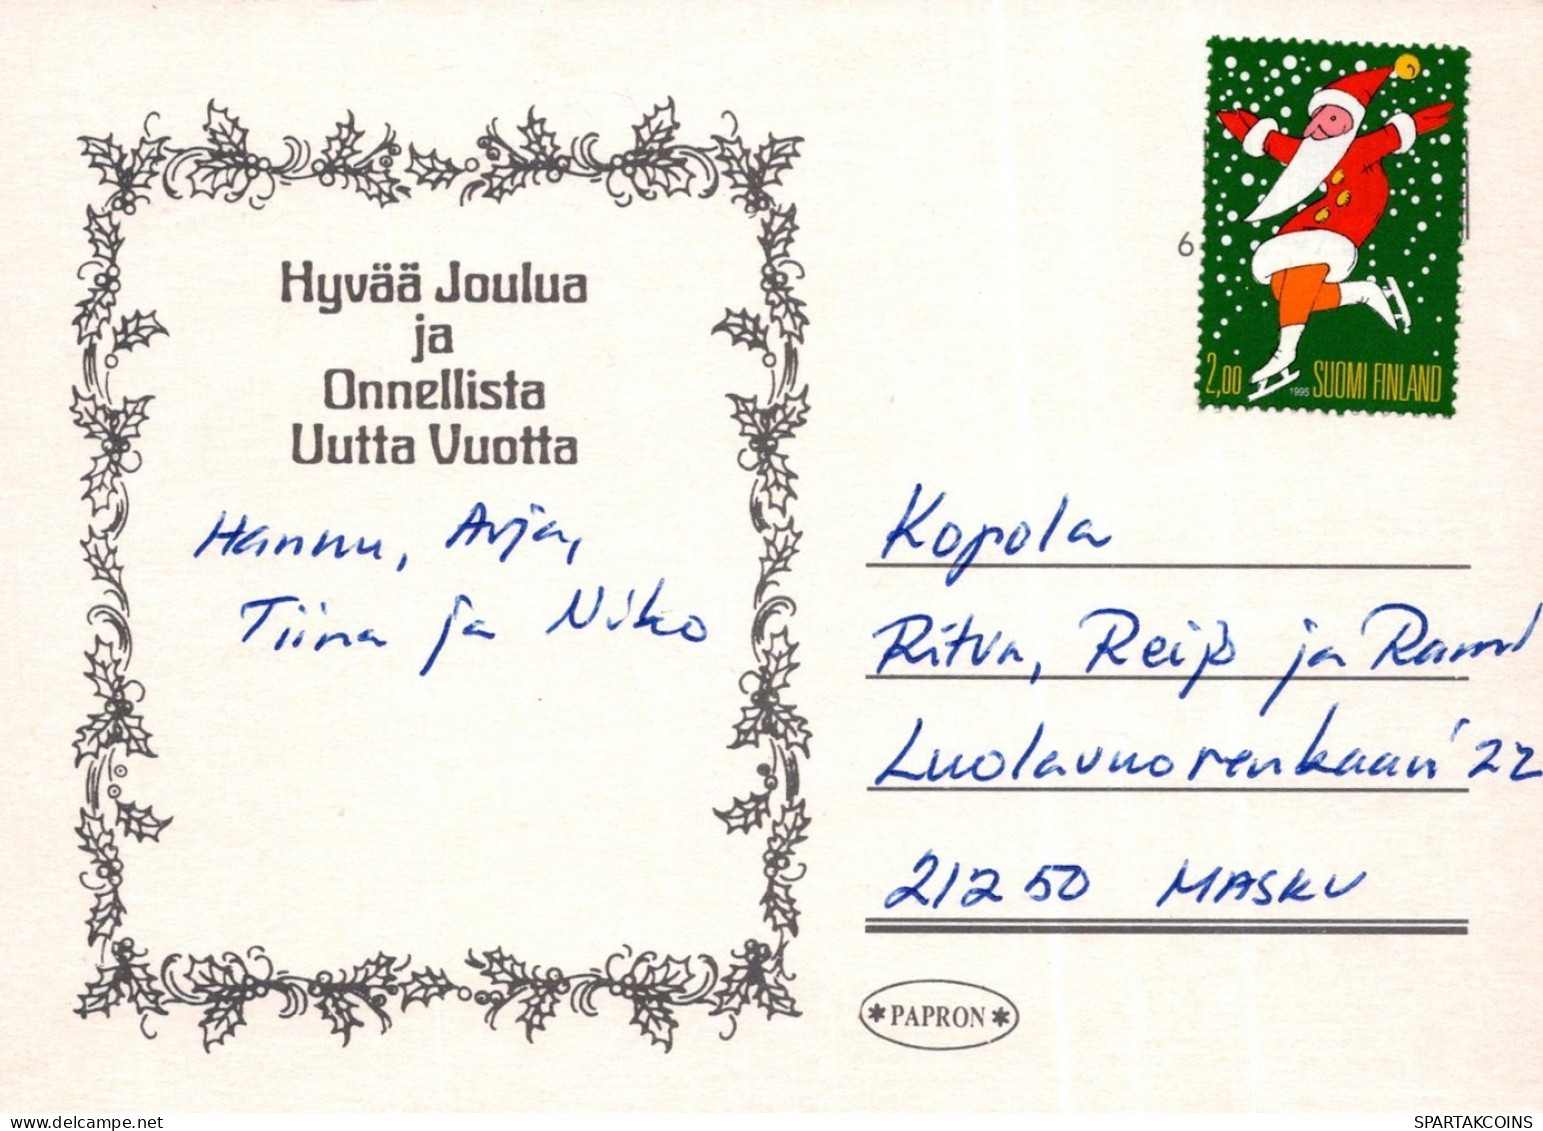 Hyvää Joulua
ja
Onnellista
Uutta Vuotta
Hannu, Arja,
Tiina ja Niko
6
2,00 1995 SUOMI FINLAND
Kopola
Ritva, Reijo ja
Luolavuorenkaari 22
21250 MASKU
*PAPRON*
SPARTAKCOINS